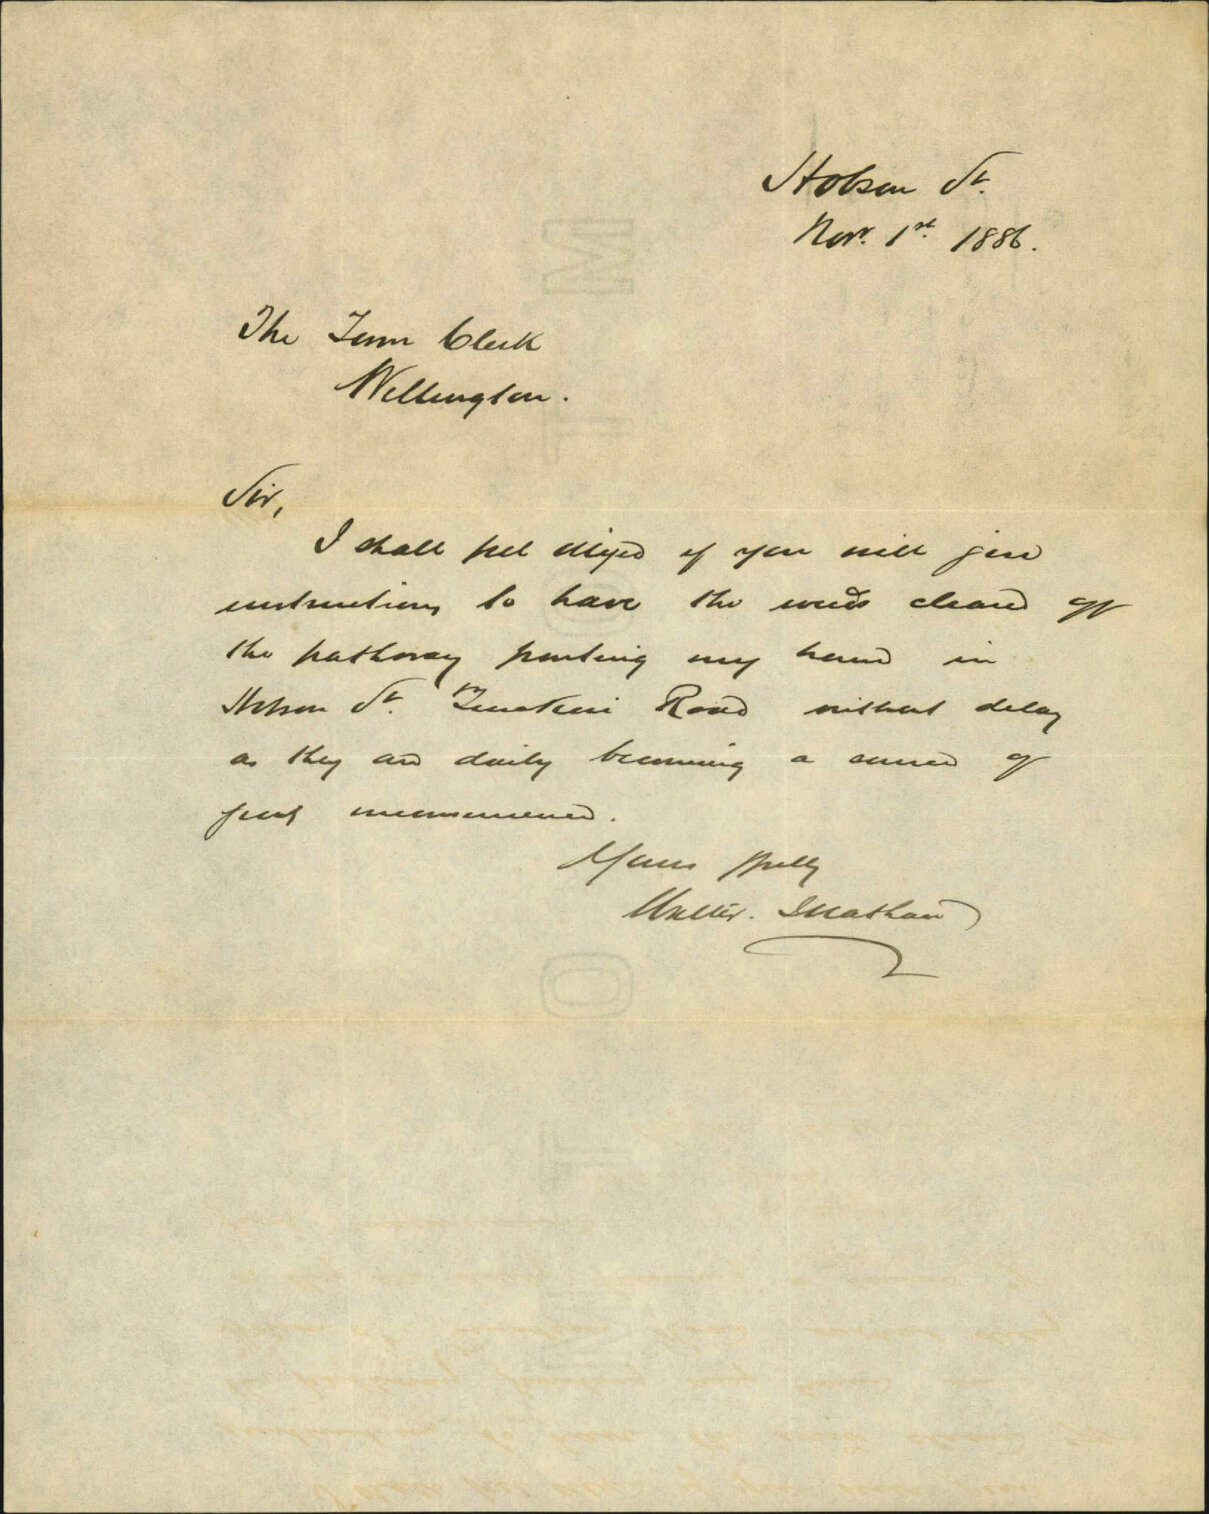 Hobson St.
Novr. 1st 1886.
The Town Clerk
Wellington.
Sir,
I shall feel obliged if you will give
instructions to have the weeds cleared off
the pathway fronting my house in
Hobson St. Road without delay
as they are daily becoming a source of
great inconvenience.
Yours truly
Walter. Nathan